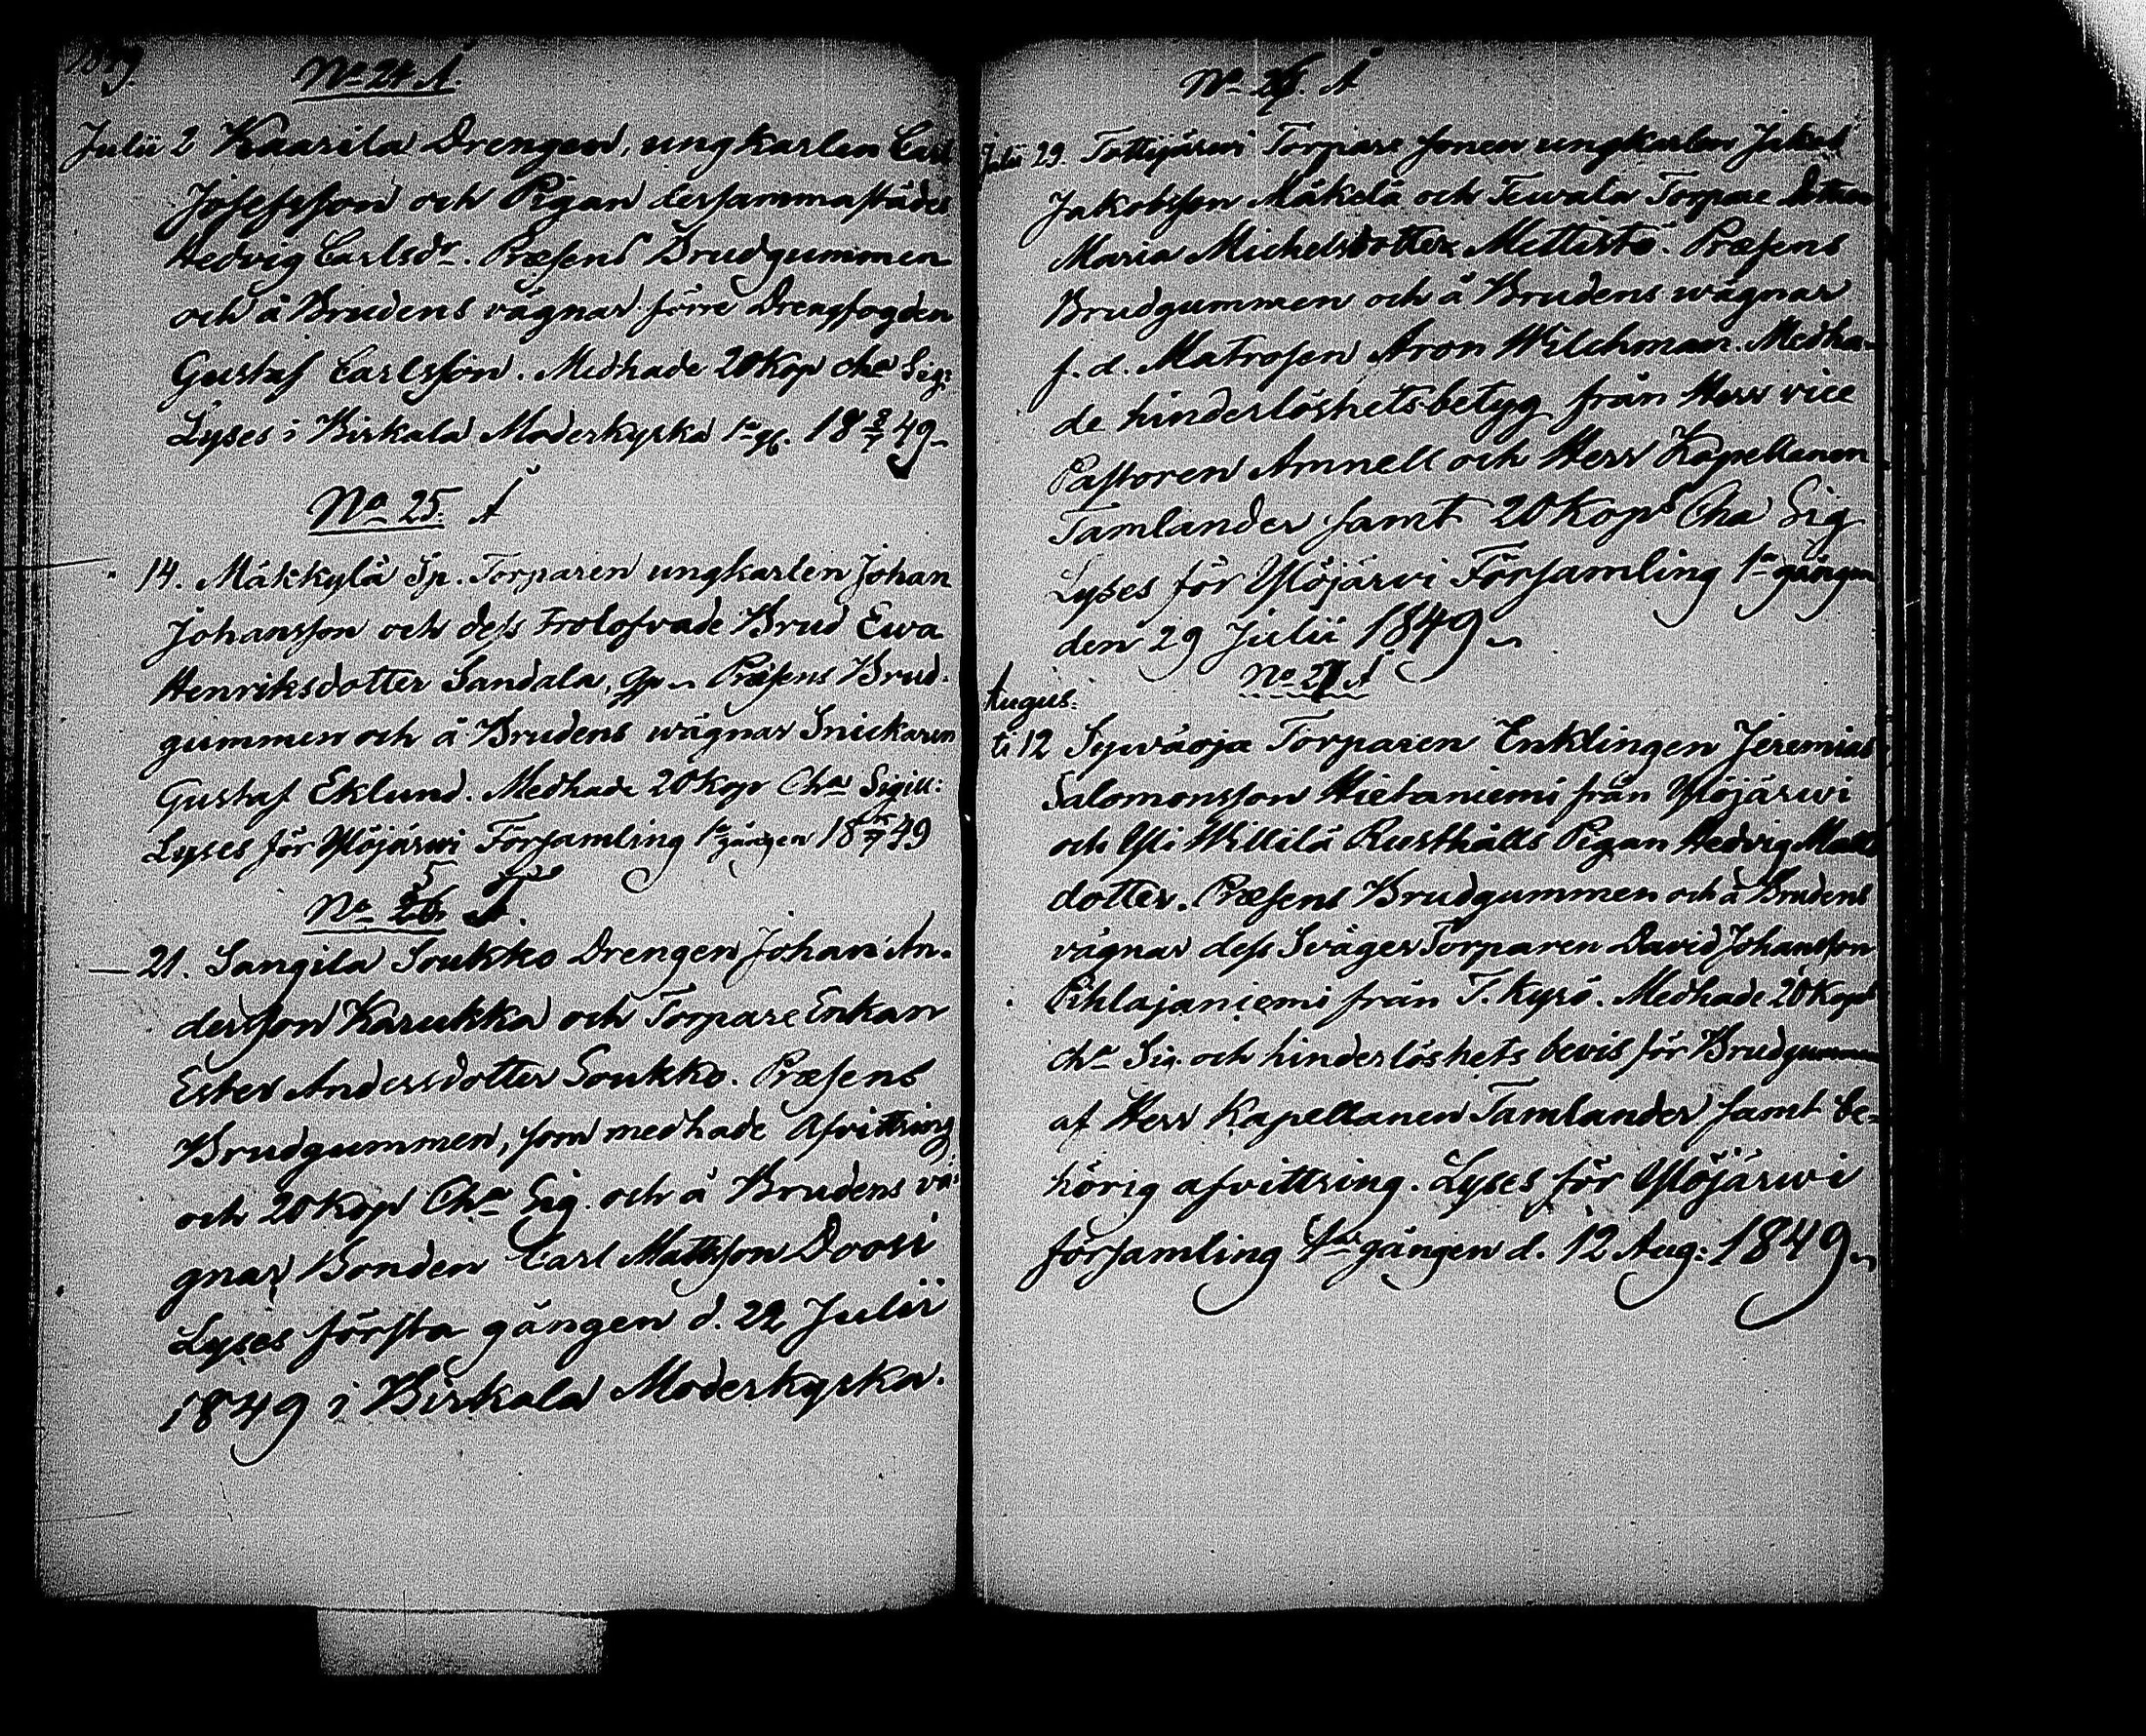 1849.
No 24 Å
Julii 2 Kaarila Drengen, ungkarlen Carl
Josefsson och Pigan dersammastädes
Hedvig Carlsdr. Præsens Brudgummen
och å Brudens vägnar förre Drengfogden
Gustaf Carlsson. Medhade 20 Kop cha Sig:
Lyses i Birkala Moderkyrka 1a gg. 18 8/7 49
No 25. Å
" 14. Mäkkylä Sp. Torparen ungkarlen Johan
Johansson och dess trolofvade Brud Ewa
Henriksdotter Sandala, Præsens Brud-
gummen och å Brudens wägnar Snickaren
Gustaf Eklund. Medhade 20 Kop Cha Sigill:
Lyses för Ylöjärwi Församling 1a gången 18 15/7 49
No 26 5
— 21. Sangila Soukko Drengen Johan An-
dersson Karukka och Torpare Enkan
Ester Andersdotter Soukko. Præsens
Brudgummen, som medhade Afvittring
och 20 Kop Cha Sig. och å Brudens vä-
gnar Bonden Carl Mattsson Doosi
Lyses första gången d. 22 Julii
1849 i Birkala Moderkyrka.
No 26. Å
Julii 29. Tottijärwi Torpare sonen ungkarlen Jakob
Jakobsson Mäkelä och Torpare Dottren
Maria Michelsdotter Mettistö. Præsens
Brudgummen och å Brudens wägnar
f. d. Matrosen Aron Wilchman. Medha-
de hinderlöshetsbetyg från Herr vice
Pastoren Amnell och Herr Kapellanen
Tamlander samt 20 Kops Cha Sig
Lyses för Ylöjärwi Församling 1a gången
den 29 Julii 1849
No 27 Å
Augus:
ti 12 Sywäoja Torparen Enklingen Jeremias
Salomonsson Hietaniemi från Ylöjärwi
och Yli Willilä Rusthålls Pigan Hedvig Matts
dotter. Præsens Brudgummen och å Brudens
vägnar dess Sväger Torparen David Johansson
Pihlajaniemi från T. Kyrö. Medhade 20 Kops
cha Sig. och hinderlöshets bevis för Brudgummen
af Herr Kapellanen Tamlander samt be-
hörig afvittring. Lyses för Ylöjärwi
församling 1a gången d. 12 Aug: 1849